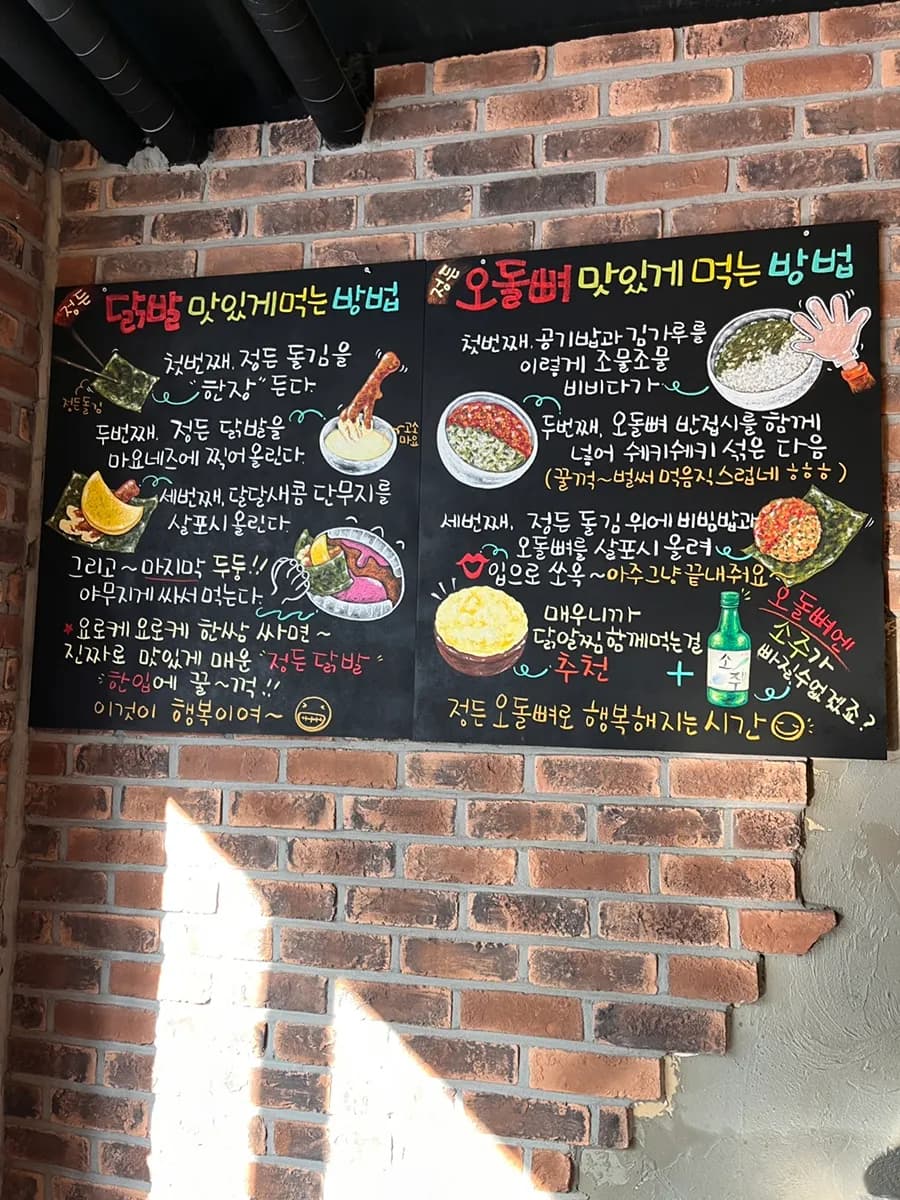 정든
닭발 맛있게 먹는 방법
첫번째. 정든 돌김을
"한장" 든다.
정든돌김
두번째. 정든 닭발을
마요네즈에 찍어 올린다.
고소
마요
세번째, 달달새콤 단무지를
살포시 올린다
그리고~ 마지막 두둥!!
야무지게 싸서 먹는다.
*요로케 요로케 한쌈 싸면~
진짜로 맛있게 매운 "정든 닭발"
"한입에 꿀~꺽!!
이것이 행복이여~
정든
오돌뼈 맛있게 먹는 방법
첫번째. 공기밥과 김가루를
이렇게 조물조물
비비다가
두번째, 오돌뼈 반접시를 함께
넣어 쉐키쉐키 섞은 다음
(꿀꺽~벌써 먹음직스럽네 ㅎㅎㅎ)
세번째. 정든 돌김 위에 비빔밥과
오돌뼈를 살포시 올려
입으로 쏘옥~아주그냥 끝내줘요~
매우니까
닭알찜함께먹는걸
추천
+
소주
오돌뼈엔
소주가
빠질수없겠죠?
정든 오돌뼈로 행복해지는시간